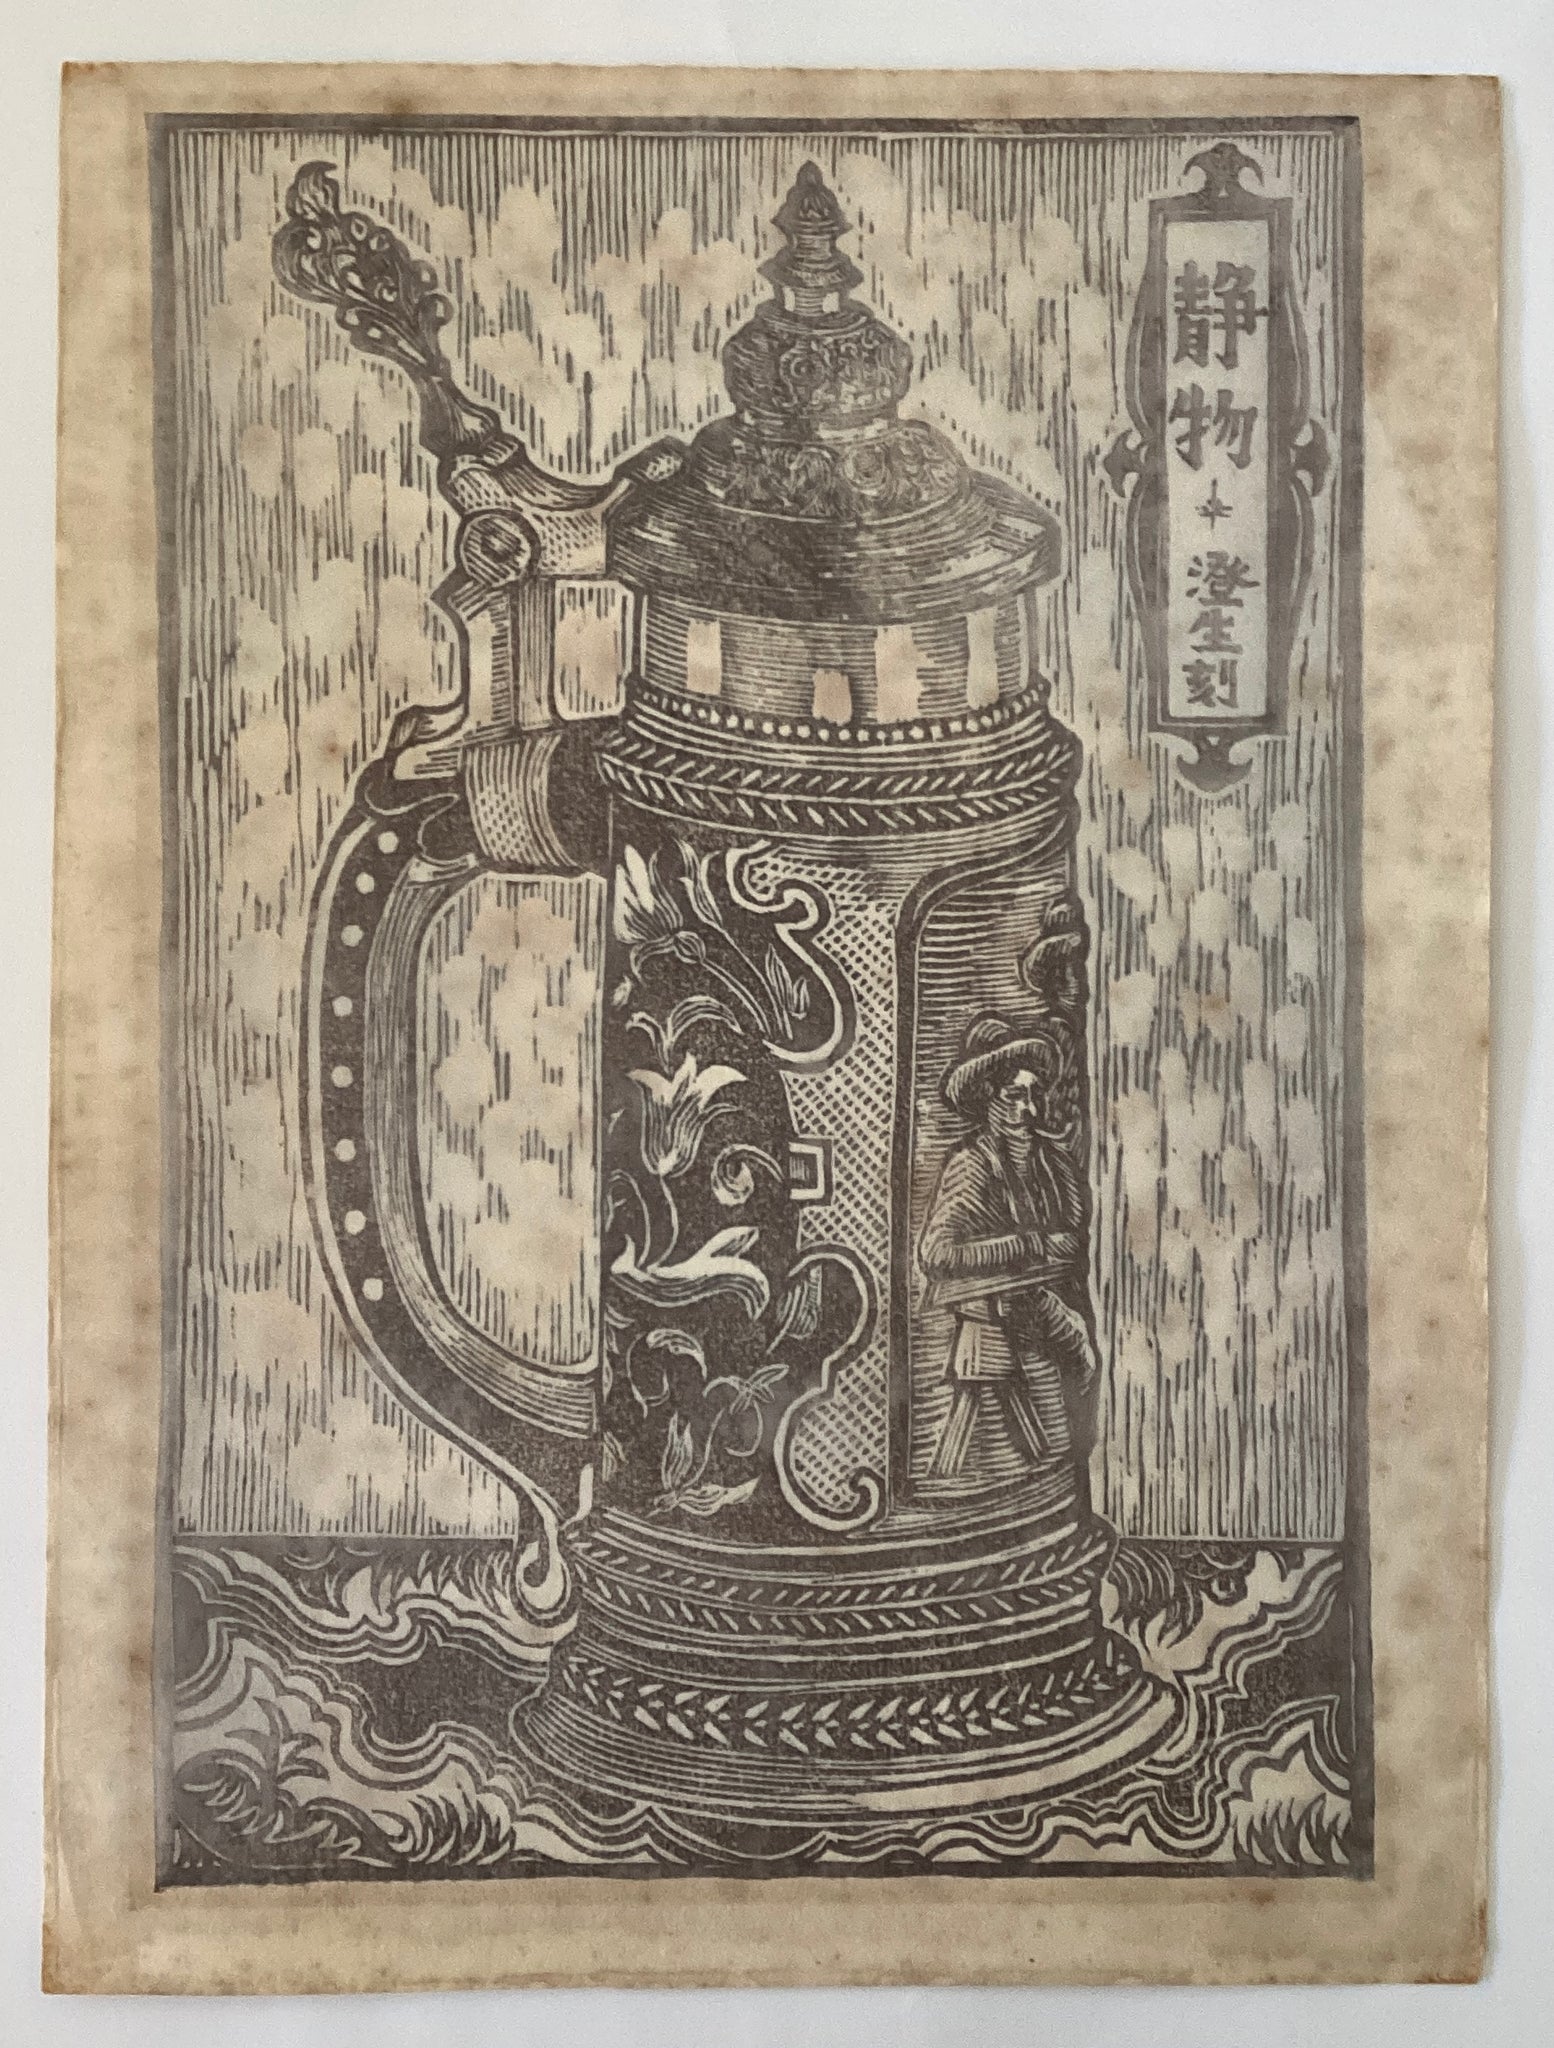 静物
澄生刻